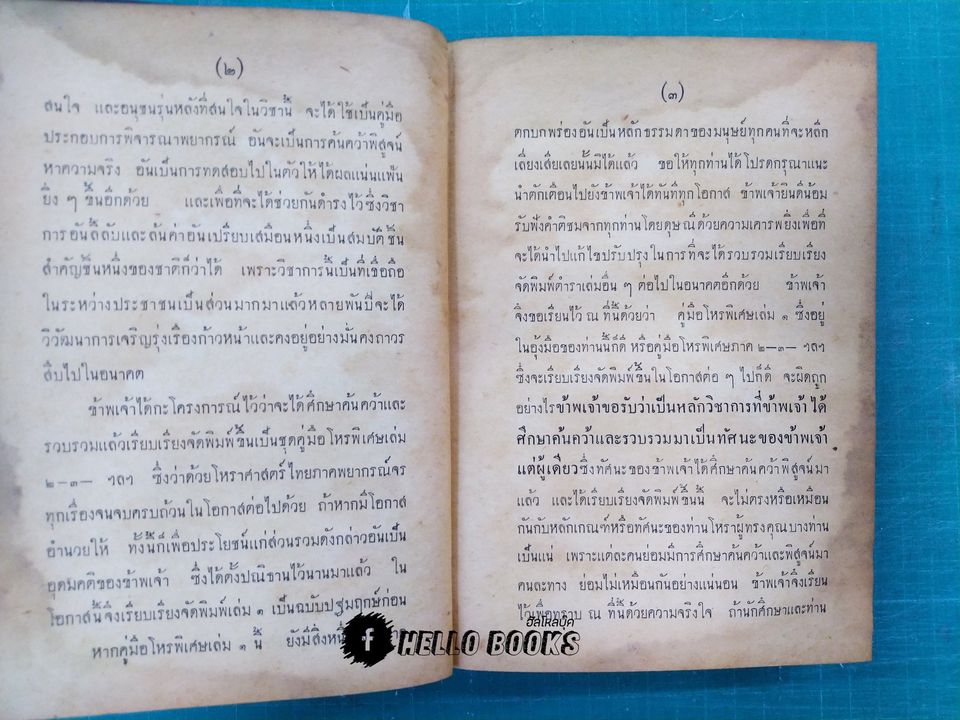 (๒)
สนใจ และอนุชนรุ่นหลังที่สนใจในวิชานี้ จะได้ใช้เป็นคู่มือ
ประกอบการพิจารณาพยากรณ์ อันจะเป็นการค้นคว้าพิสูจน์
หาความจริง อันเป็นการทดสอบไปในตัวให้ได้ผลแน่นแฟ้น
ยิ่ง ๆ ขึ้นอีกด้วย และเพื่อที่จะได้ช่วยกันดำรงไว้ซึ่งวิชา
การอันลี้ลับและล้นค่าอันเปรียบเสมือนหนึ่งเป็นสมบัติชิ้น
สำคัญชิ้นหนึ่งของชาติก็ว่าได้ เพราะวิชาการนี้เป็นที่เชื่อถือ
ในระหว่างประชาชนเป็นส่วนมากมาแล้วหลายพันปีจะได้
วิวัฒนาการเจริญรุ่งเรืองก้าวหน้าและคงอยู่อย่างมั่นคงถาวร
สืบไปในอนาคต
ข้าพเจ้าได้กะโครงการณ์ไว้ว่าจะได้ศึกษาค้นคว้าและ
รวบรวมแล้วเรียบเรียงจัดพิมพ์ขึ้นเป็นชุดคู่มือโหรพิเศษเล่ม
๒–๓– ฯลฯ ซึ่งว่าด้วยโหราศาสตร์ไทยภาคพยากรณ์จร
ทุกเรื่องจนจบครบถ้วนในโอกาสต่อไปด้วย ถ้าหากมีโอกาส
อำนวยให้ ทั้งนี้ก็เพื่อประโยชน์แก่ส่วนรวมดังกล่าวอันเป็น
อุดมคติของข้าพเจ้า ซึ่งได้ตั้งปณิธานไว้นานมาแล้ว ใน
โอกาสนี้จึงเรียบเรียงจัดพิมพ์เล่ม ๑ เป็นฉบับปฐมฤกษ์ก่อน
หากคู่มือโหรพิเศษเล่ม ๑ นี้ ยังมีสิ่งหนึ่ง
(๓)
ตกบกพร่องอันเป็นหลักธรรมดาของมนุษย์ทุกคนที่จะหลีก
เลี่ยงเสียเลยนั้นมิได้แล้ว ขอให้ทุกท่านได้โปรดกรุณาแนะ
นำตักเตือนไปยังข้าพเจ้าได้ทันทีทุกโอกาส ข้าพเจ้ายินดีน้อม
รับฟังคำติชมจากทุกท่านโดยดุษณีด้วยความเคารพยิ่งเพื่อที่
จะได้นำไปแก้ไขปรับปรุงในการที่จะได้รวบรวมเรียบเรียง
จัดพิมพ์ตำราเล่มอื่น ๆ ต่อไปในอนาคตอีกด้วย ข้าพเจ้า
จึงขอเรียนไว้ ณ ที่นี้ด้วยว่า คู่มือโหรพิเศษเล่ม ๑ ซึ่งอยู่
ในอุ้งมือของท่านนี้ก็ดี หรือคู่มือโหรพิเศษภาค ๒–๓– ฯลฯ
ซึ่งจะเรียบเรียงจัดพิมพ์ขึ้นในโอกาสต่อ ๆ ไปก็ดี จะผิดถูก
อย่างไรข้าพเจ้าขอรับว่าเป็นหลักวิชาการที่ข้าพเจ้าได้
ศึกษาค้นคว้าและรวบรวมมาเป็นทัศนะของข้าพเจ้า
แต่ผู้เดียวซึ่งทัศนะของข้าพเจ้าได้ศึกษาค้นคว้าพิสูจน์มา
แล้ว และได้เรียบเรียงจัดพิมพ์ขึ้นนี้ จะไม่ตรงหรือเหมือน
กันกับหลักเกณฑ์หรือทัศนะของท่านโหราผู้ทรงคุณบางท่าน
เป็นแน่ เพราะแต่ละคนย่อมมีการศึกษาค้นคว้าและพิสูจน์มา
คนละทาง ย่อมไม่เหมือนกันอย่างแน่นอน ข้าพเจ้าจึงเรียน
ไว้เพื่อทราบ ณ ที่นี้ด้วยความจริงใจ ถ้านักศึกษาและท่าน
ฮัลโหลบุ๊ค
f HELLO BOOKS